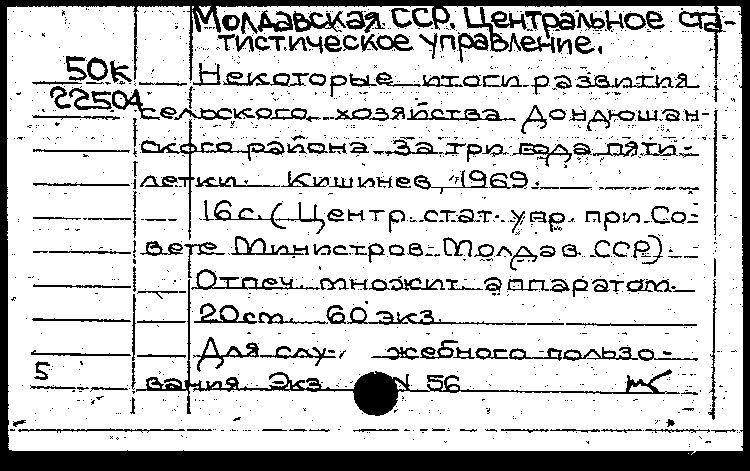 Молдавская ССР. Центральное ста-
тистическое управление.
50к
Некоторые итоги развития
22504
сельского хозяйства Дондюшан-
ского района за три года пяти-
летки. Кишинев, 1969.
16 с. (Центр. стат. упр. при Со-
вете Министров Молдав ССР).
Отпеч. множит. аппаратом.
20 см. 60 экз.
Для слу-, жебного пользо-
5
вания Экз. N 56